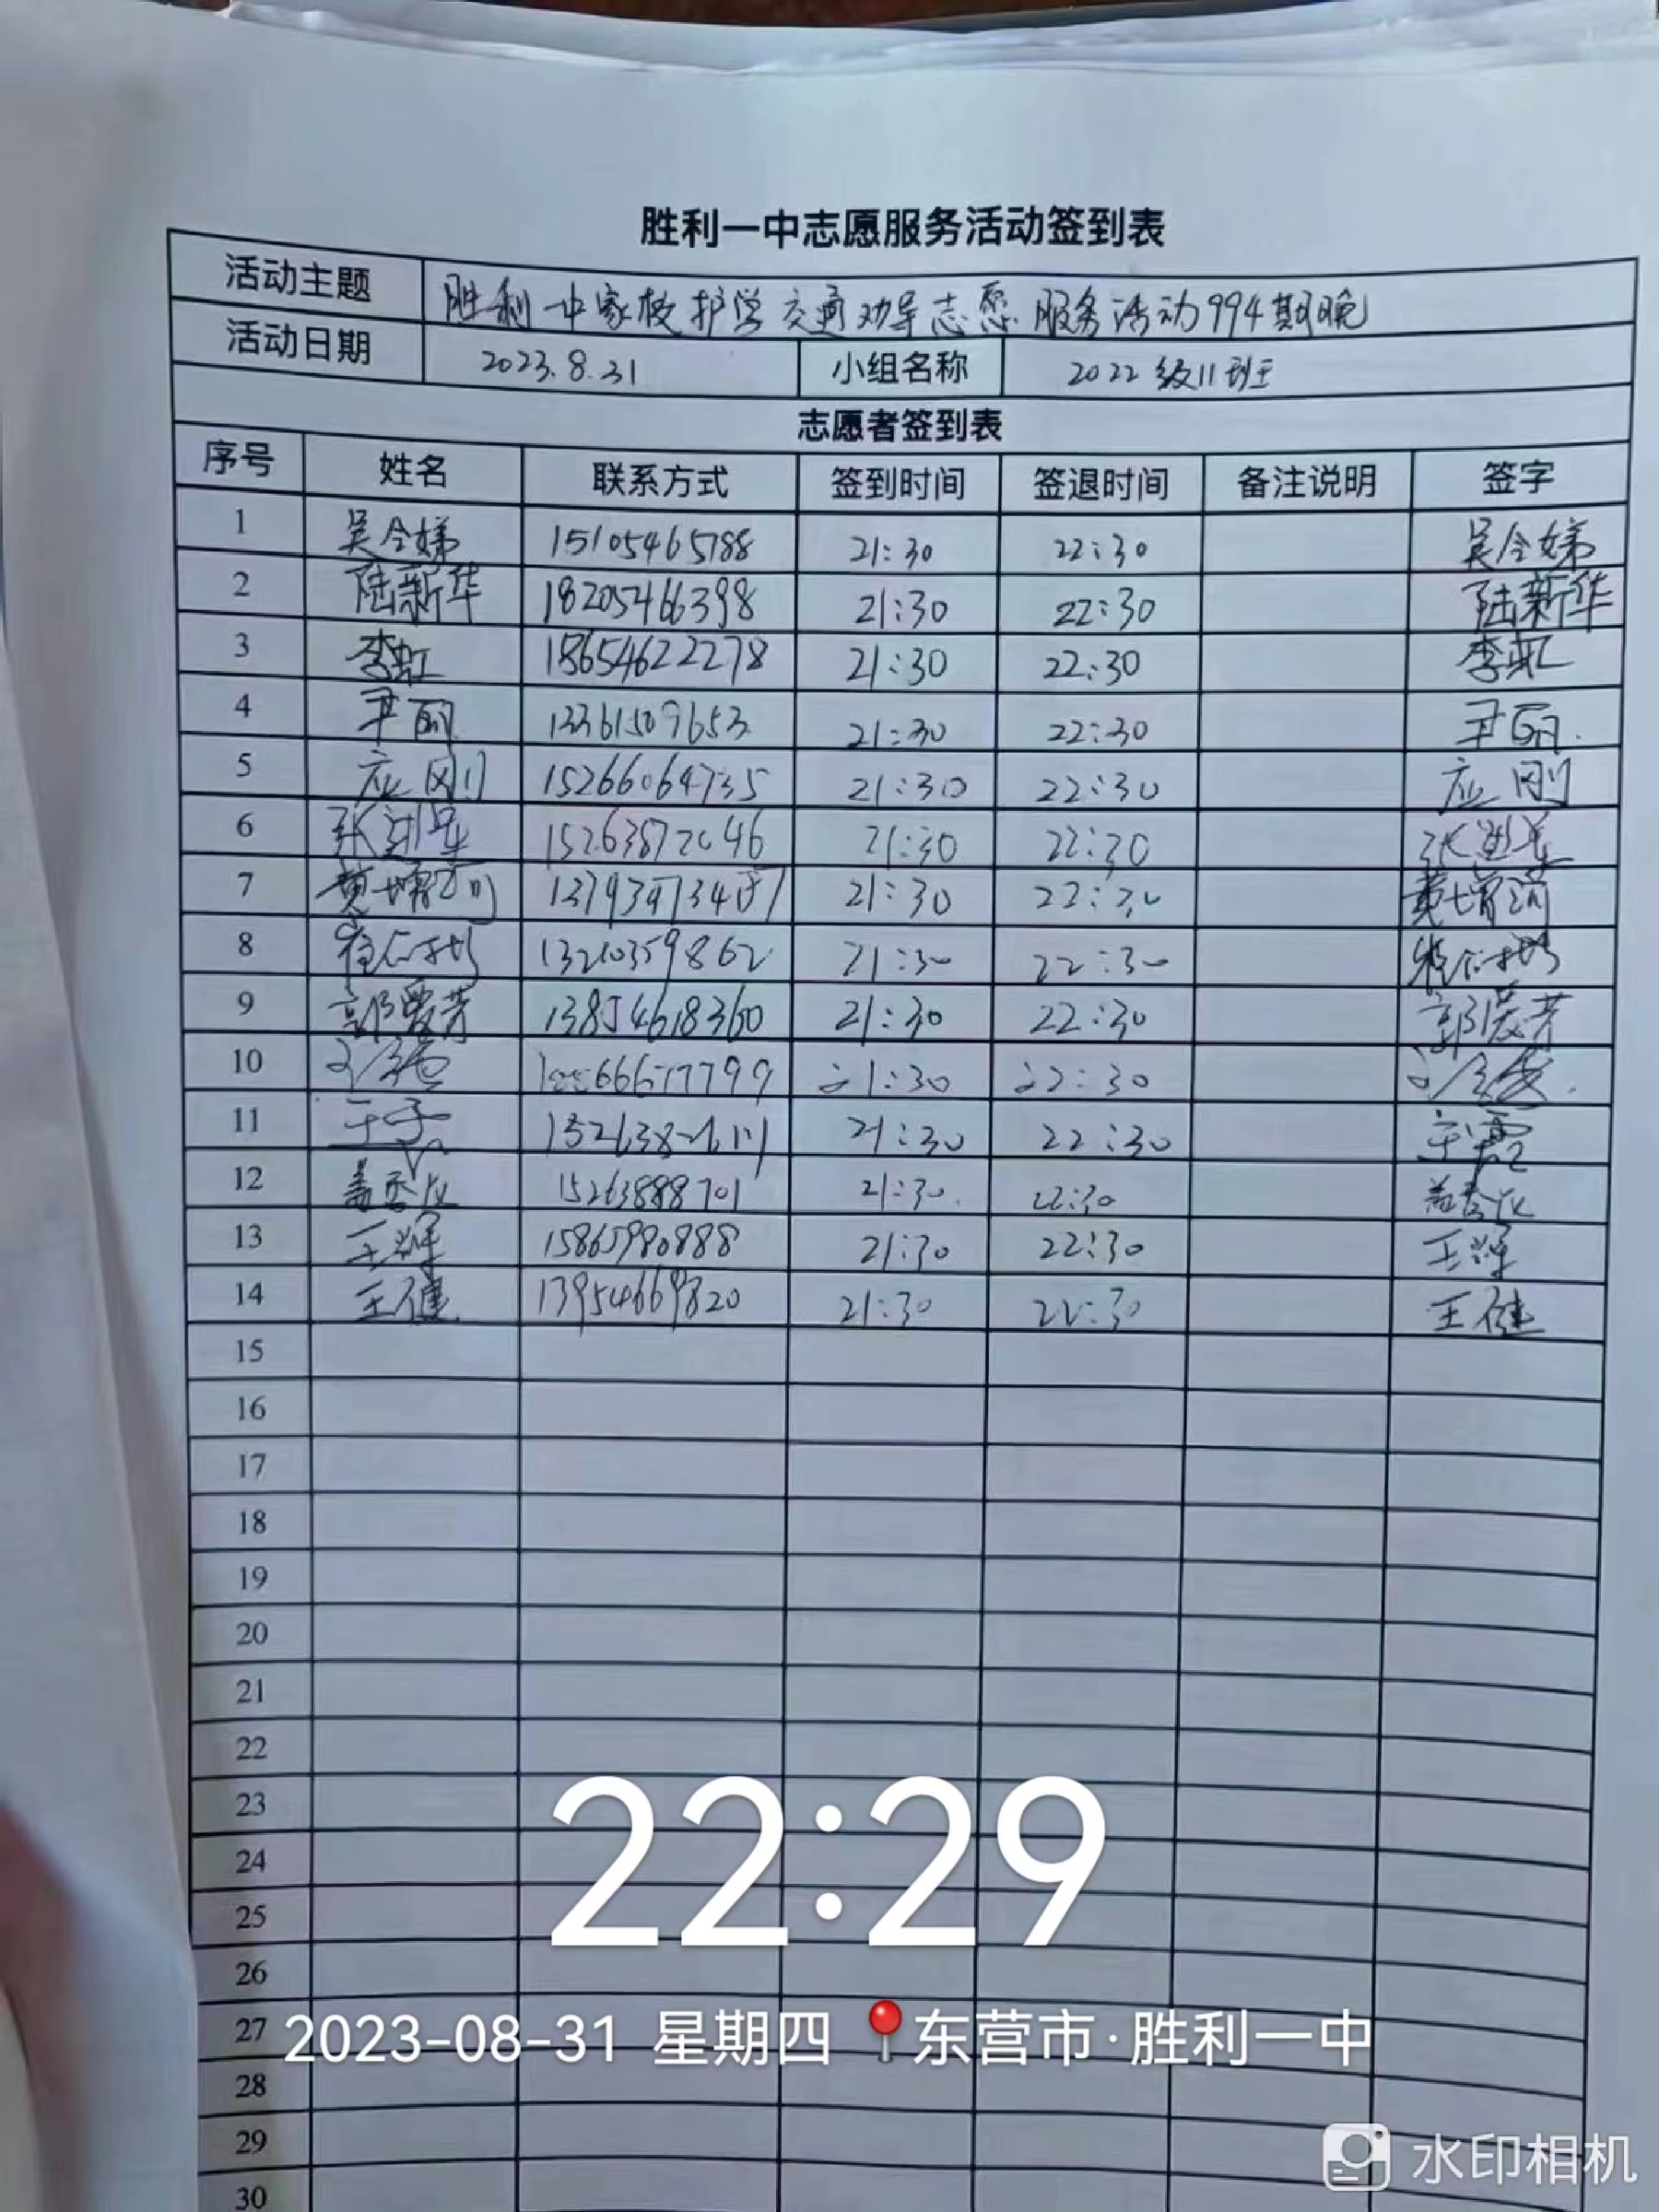 胜利一中志愿服务活动签到表
活动主题 胜利一中家校护学交通劝导志愿服务活动994期晚
活动日期 2023.8.31 小组名称 2022级11班
志愿者签到表
序号 姓名 联系方式 签到时间 签退时间 备注说明 签字
1 吴令娣 15105465788 21:30 22:30 吴令娣
2 陆新华 18205466398 21:30 22:30 陆新华
3 李虹 18654622278 21:30 22:30 李虹
4 尹丽 13361509653 21:30 22:30 尹丽
5 应刚 15266064735 21:30 22:30 应刚
6 15263872046 21:30 22:30
7 21:30 22:30
8 13210359862 21:30 22:30
9 郭爱芳 13854618360 21:30 22:30 郭爱芳
10 21:30 22:30
11 21:30 22:30
12 15263888701 21:30 22:30
13 王辉 15865980888 21:30 22:30 王辉
14 王健 13954669820 21:30 22:30 王健
15
16
17
18
19
20
21
22
23
22:29
24
25
26
27
2023-08-31 星期四 东营市·胜利一中
28
29
水印相机
30